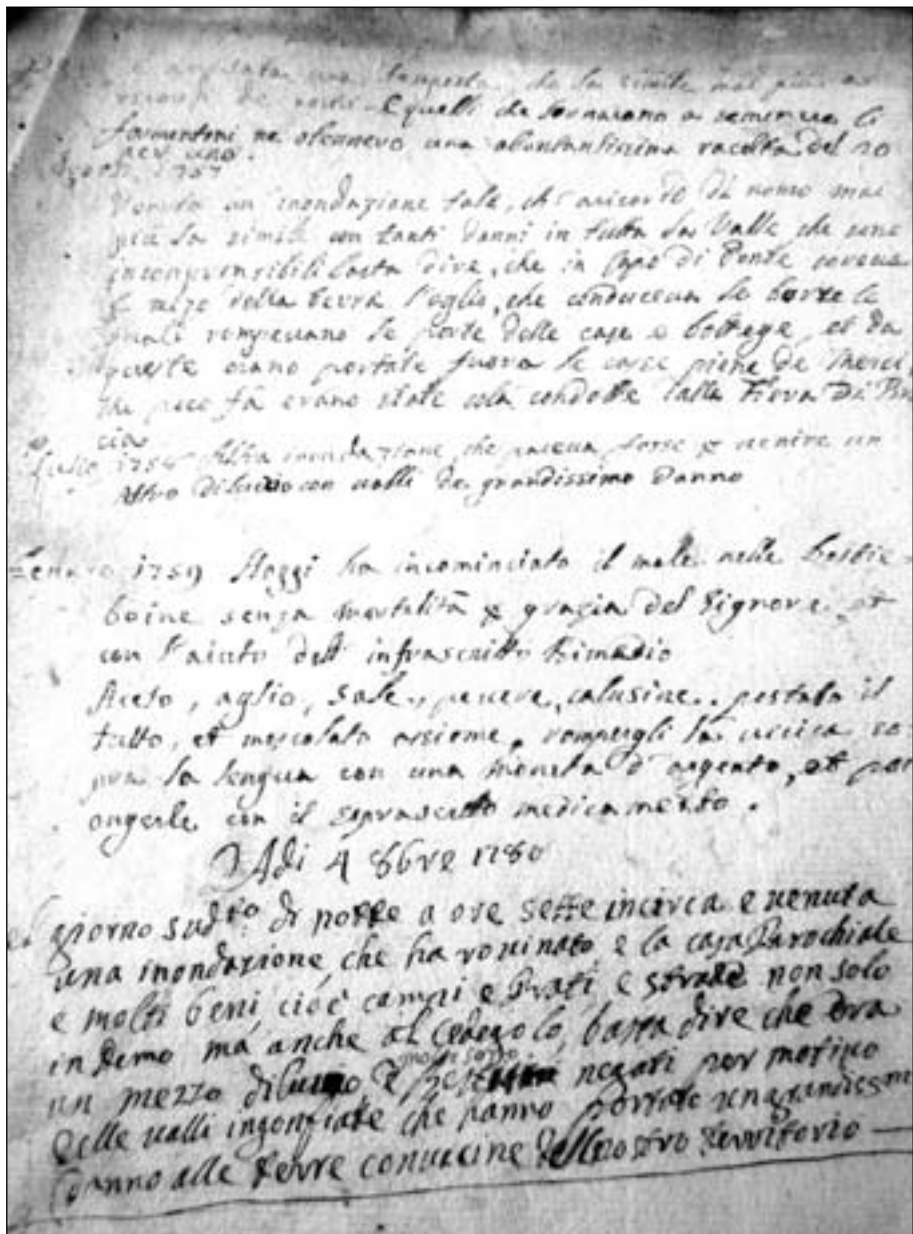 è una tempesta, che la simile mai più a
E quelli da Sonnaiano a seminar li
formentoni ne otennero una abontantissima racolta del 20
per uno.
1757
Venuta un inondazione tale, che a ricordo di nomo mai
più la simile con tanti danni in tutta la Valle che sono
incomprensibili basta dire, che in Capo di Ponte coreva
p mezo della terra l'oglio, che conduceva le borre le
quali rompevano le porte delle case e bottege, et da
queste erano portate fuora le casse piene de merci,
che poco fà erano state colà condotte dalla Fierra di
cia
1758 Altra inondazione che pareva forse p venire un
Altro Diluvio con valli de grandissimo danno
Genaro 1759 Hoggi ha incominciato il male nelle bestie
boine senza mortalità p grazia del Signore et
con l'aiuto dell' infrascritto Rimedio
Aceto, aglio, sale, pevere, calusine.. pestata il
tutto, et mescolato assieme, rompergli la vesica so
pra la lengua con una moneta d'argento, et poi
ongerle con il soprascritto medicamento.
Adi 4 8bre 1780
giorno sud.to di notte a ore sette incirca e venuta
una inondazione, che ha rovinato e la casa Parochiale
e molti beni cioè campi e Prati, e strade non solo
in demo mà anche al Cedegolo, basta dire che era
un mezzo diluvio e molte negati per motivo
delle valli ingonfiate che hanno portato un grandissm
danno alle terre convicine dell nostro Territorio